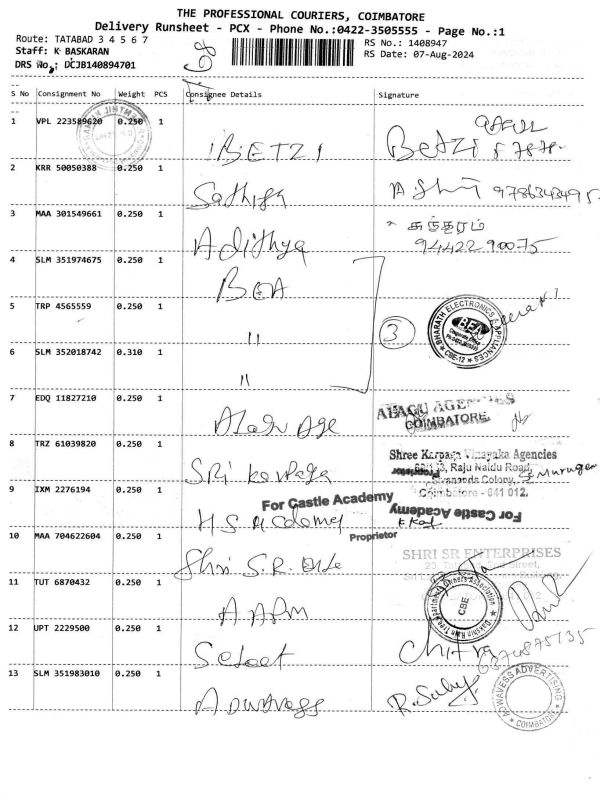 THE PROFESSIONAL COURIERS, COIMBATORE
Delivery Runsheet - PCX - Phone No.:0422-3505555 - Page No.:1
Route: TATABAD 3 4 5 6 7
RS No.: 1408947
Staff: K BASKARAN
RS Date: 07-Aug-2024
DRS No.: DCJB140894701
S No Consignment No Weight PCS Consignee Details Signature
1 VPL 223589620 0.250 1 BETZI Betzi
2 KRR 50050388 0.250 1 Sathish 9786343495
3 MAA 301549661 0.250 1 Adithya சுந்தரம்
9442290075
4 SLM 351974675 0.250 1 BEA
5 TRP 4565559 0.250 1 " 3 BHARATH ELECTRONICS & APPLIANCES
CBE-12
6 SLM 352018742 0.310 1 "
7 EDQ 11827210 0.250 1 Alagu Age ALAGU AGENCIES
COIMBATORE
8 TRZ 61039820 0.250 1 Sri Karpaga Shree Karpaga Vinayaka Agencies
Raju Naidu Road,
Sivananda Colony,
Coimbatore - 641 012.
Proprietor
Murugan
9 IXM 2276194 0.250 1 H.S Academy For Castle Academy
Proprietor
For Castle Academy
10 MAA 704622604 0.250 1 Shri S.R. Ente SHRI SR ENTERPRISES
11 TUT 6870432 0.250 1 AAPM CBE
12 UPT 2229500 0.250 1 Select Chitra
6374875135
13 SLM 351983010 0.250 1 Adwavess R. Saby ADWAVESS ADVERTISING
COIMBATORE